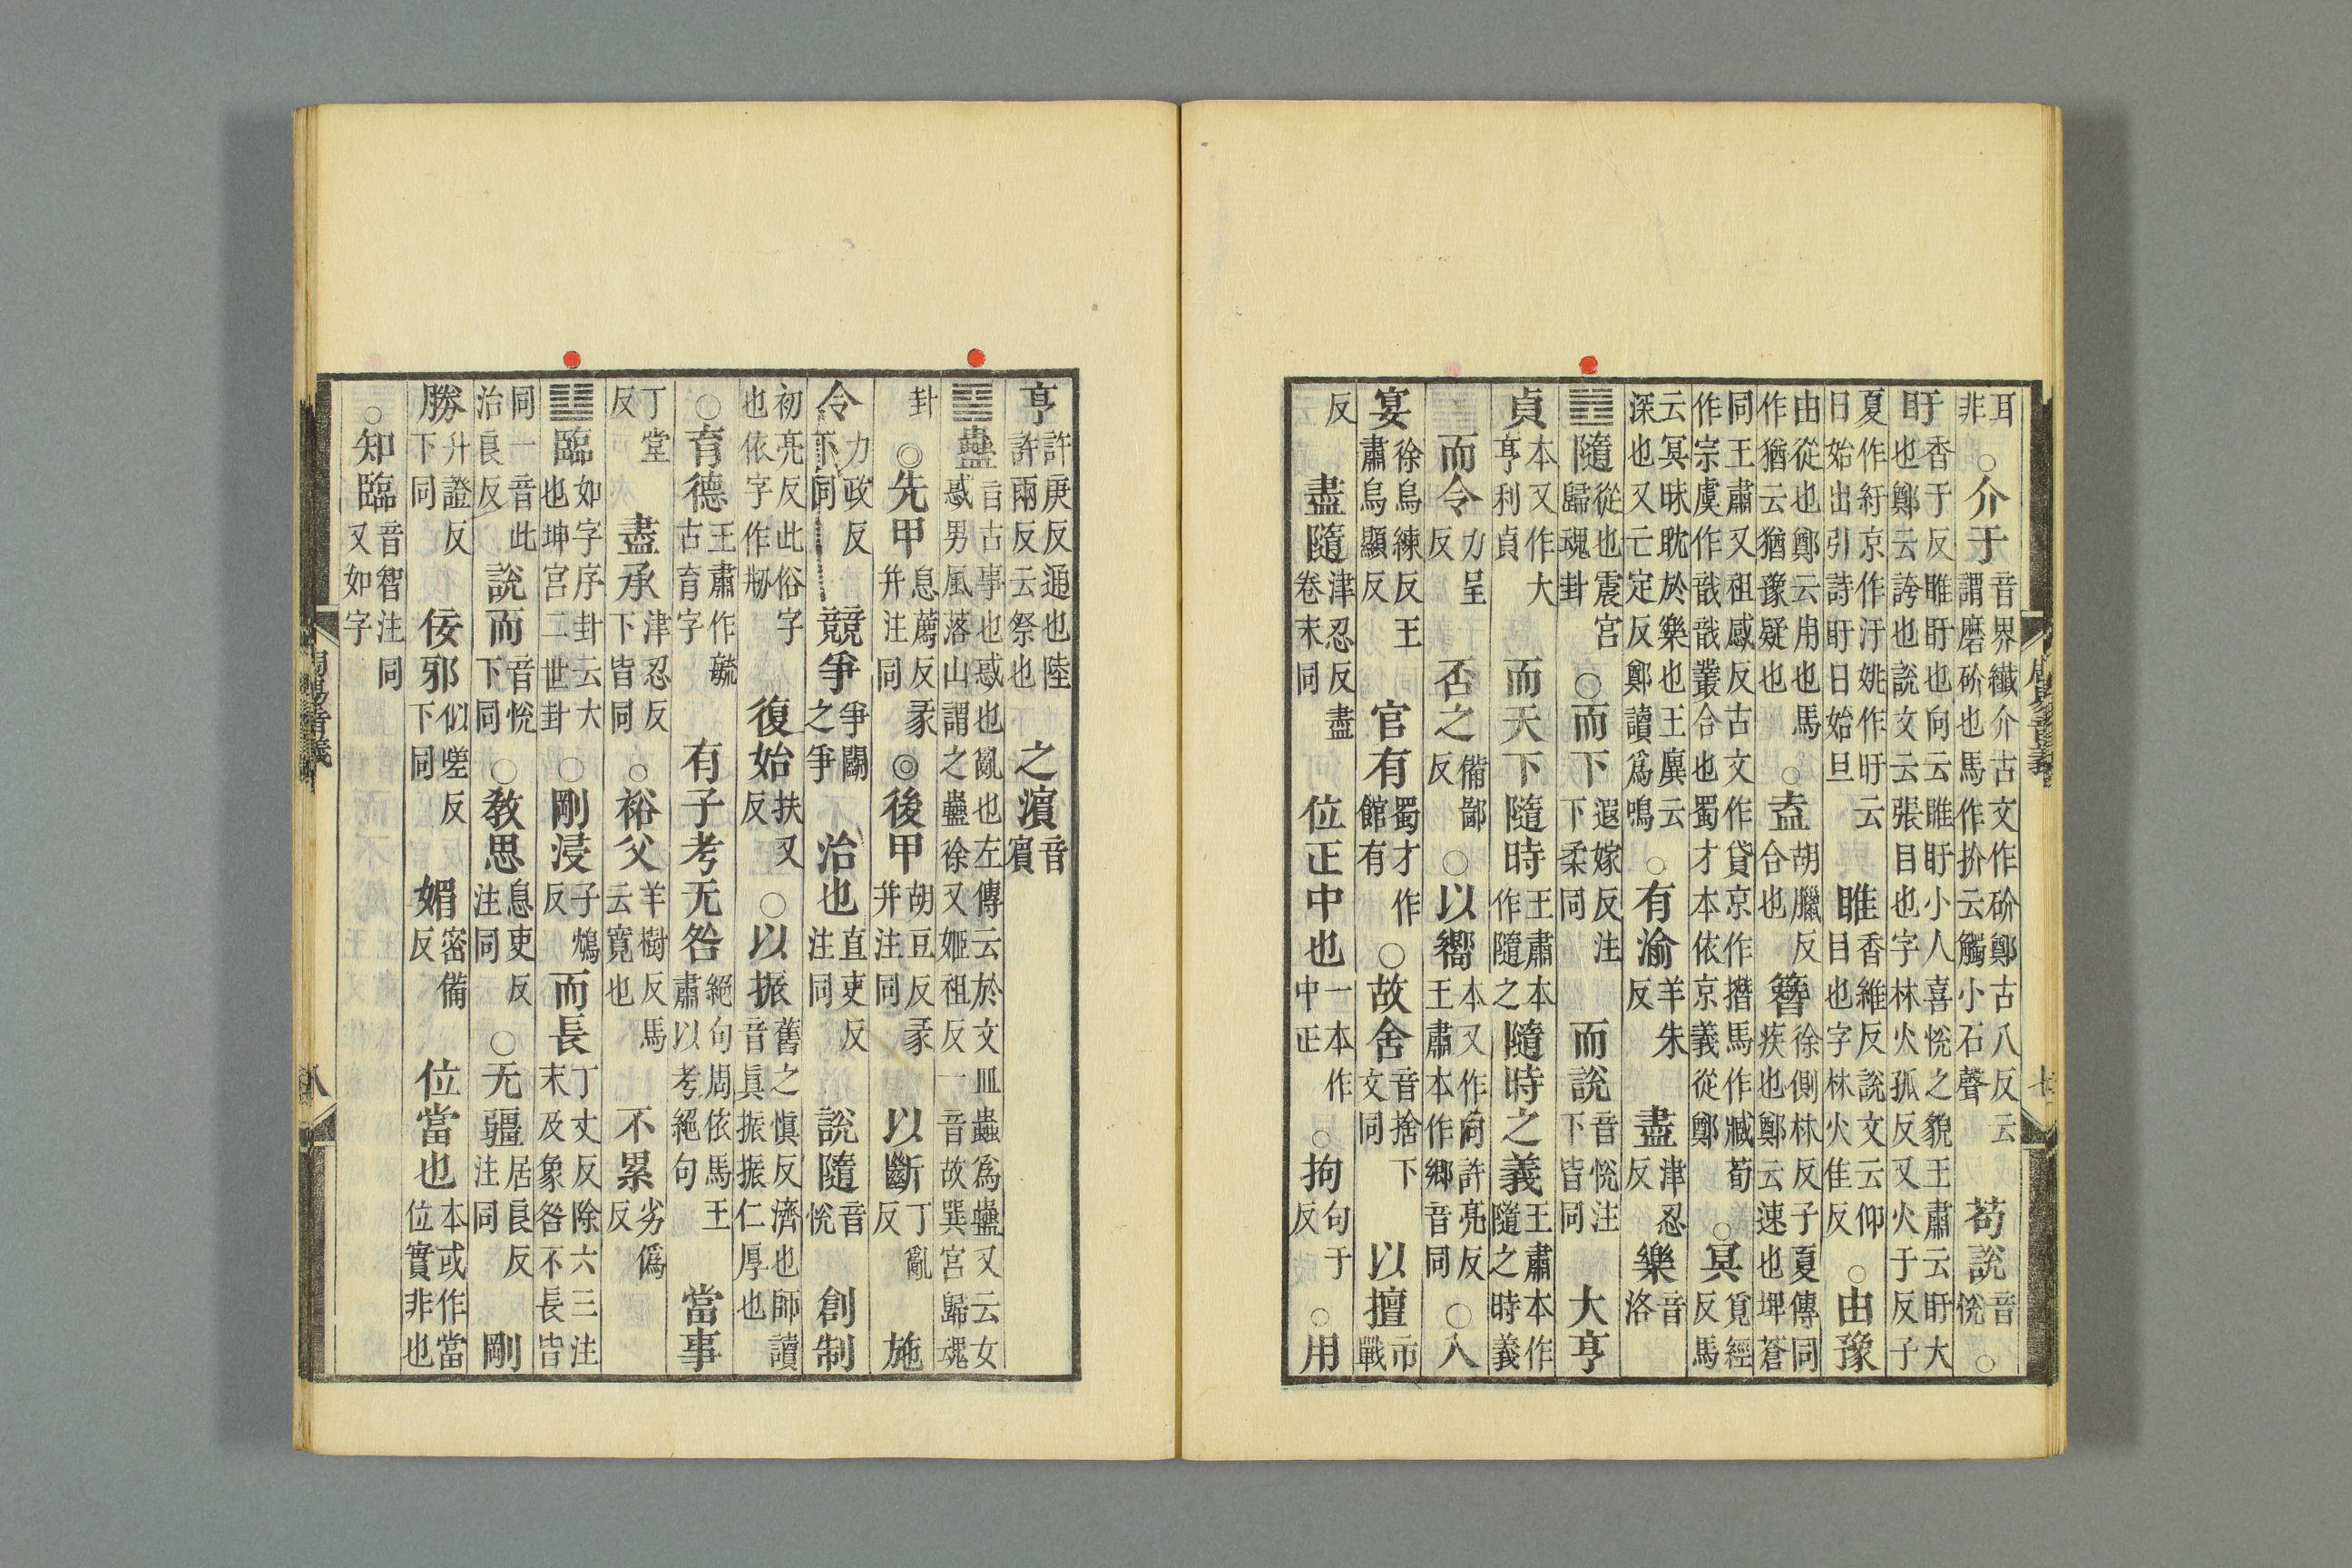 周易音義 七
耳非○介于音界纖介古文作砎鄭古八反云謂磨砎也馬作扴云觸小石聲 苟說音悅○
盱香于反睢盱也向云睢盱小人喜悅之貌王肅云盱大也鄭云誇也說文云張目也字林火孤反又火于反子
夏作紆京作汙姚作盱云日始出引詩盱日始旦 睢香維反說文云仰目也字林火隹反 ○由豫
由從也鄭云用也馬作猶云猶豫疑也 ○盍胡臘反合也 簪徐側林反子夏傳同疾也鄭云速也埤蒼
同王肅又祖感反古文作貸京作撍馬作臧荀作宗虞作戠戠叢合也蜀才本依京義從鄭 ○冥覓經反馬
云冥昧耽於樂也王廙云深也又亡定反鄭讀爲鳴 ○有渝羊朱反 盡津忍反 樂音洛
䷐隨從也震宮歸魂卦 ○而下遐嫁反注下柔同 而說音悅注下皆同 大亨
貞本又作大亨利貞 而天下隨時王肅本作隨之 隨時之義王肅本作隨之時義
而令力呈反 否之備鄙反 ○以嚮本又作向許亮反王肅本作鄉音同 ○入
宴徐烏練反王肅烏顯反 官有蜀才作館有 ○故舍音捨下文同 以擅市戰
反 盡隨津忍反盡卷末同 位正中也一本作中正 ○拘句于反 ○用
亨許庚反通也陸許兩反云祭也 之濱音賓
䷑蠱音古事也惑也亂也左傳云於文皿蟲爲蠱又云女惑男風落山謂之蠱徐又姬祖反一音故巽宮歸魂
卦 ◎先甲息薦反彖并注同 ◎後甲胡豆反彖并注同 以斷丁亂反 施
令力政反下同 競爭爭鬭之爭 治也直吏反注同 說隨音悅 創制
初亮反此俗字也依字作刱 復始扶又反 ○以振舊之愼反濟也師讀音眞振振仁厚也
○育德王肅作毓古育字 有子考无咎絕句周依馬王肅以考絕句 當事
丁堂反 盡承津忍反下皆同 ○裕父羊樹反馬云寬也 不累劣僞反
䷒臨如字序卦云大也坤宮二世卦 ○剛浸子鴆反 而長丁丈反除六三注末及象咎不長皆
同一音此治良反 說而音悅下同 ○教思息吏反注同 ○无疆居良反注同 剛
勝升證反下同 佞邪似嗟反下同 媚密備反 位當也本或作當位實非也
○知臨音智注同又如字
周易音義 八